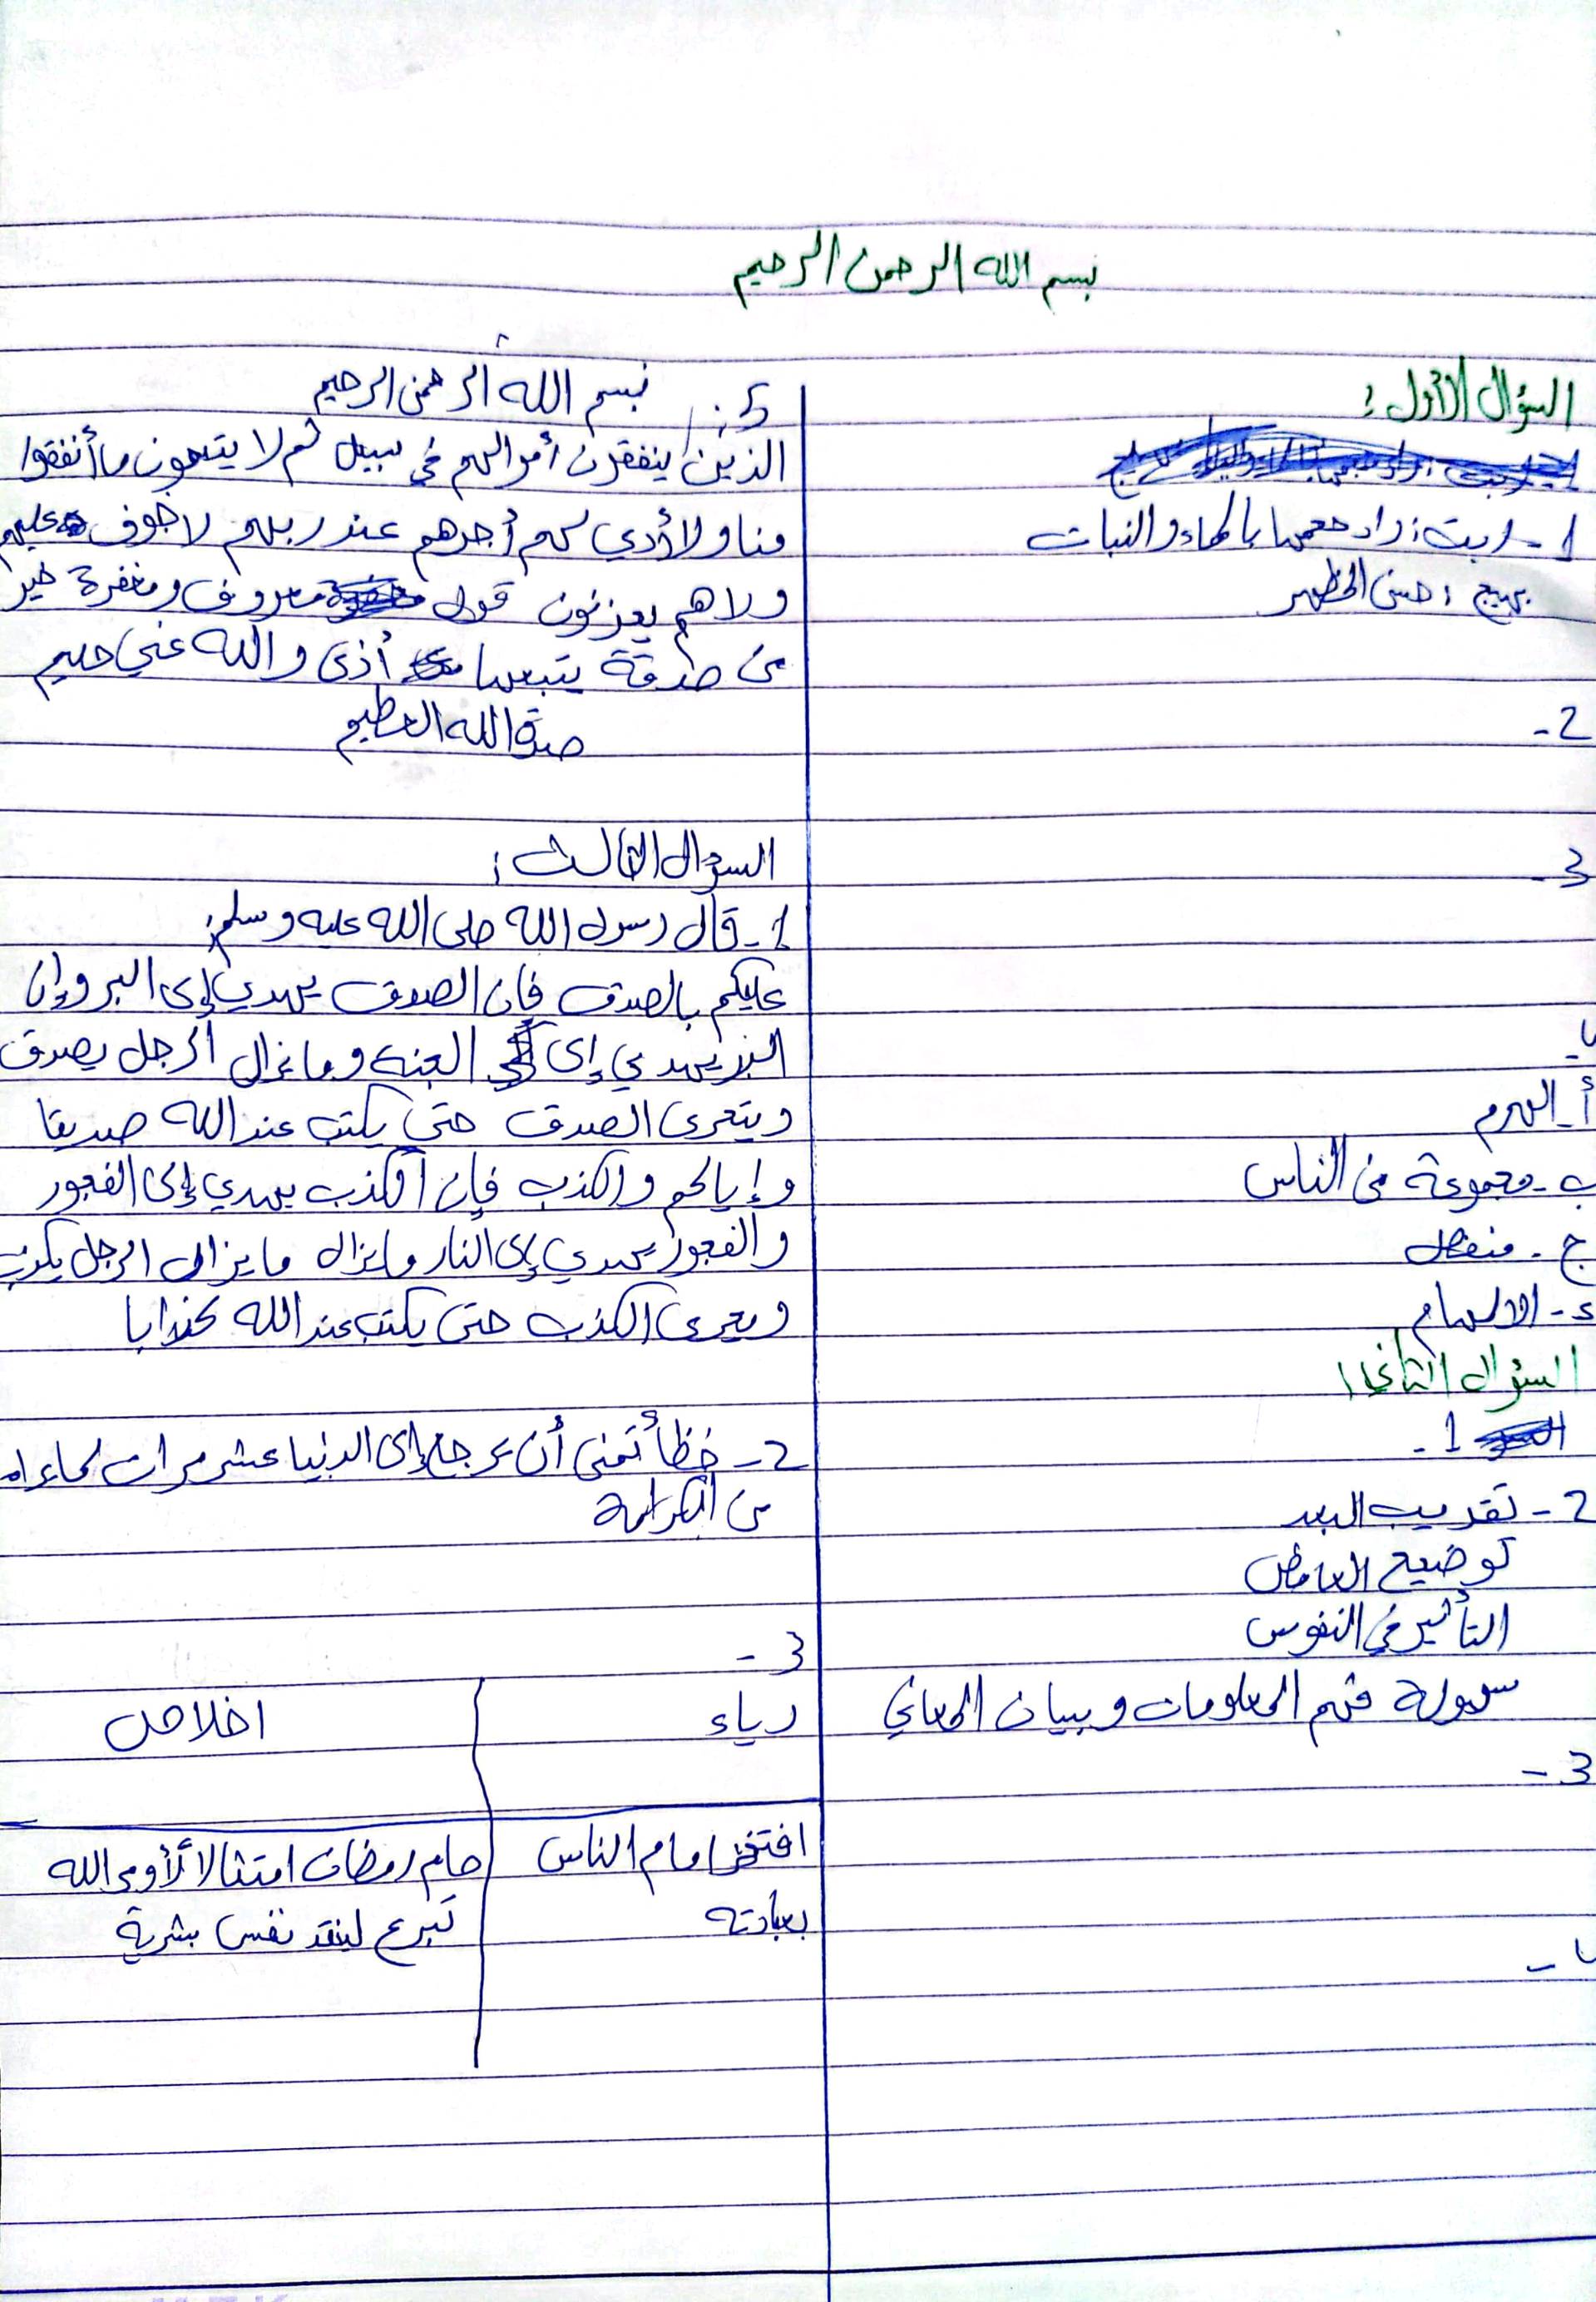 بسم الله الرحمن الرحيم
السؤال الأول :
1 - ربت : زاد حجمها بالماء والنبات
بهيج : حسن المظهر
2 -
3 -
4 -
أ - الهرم
ب - مجموعة من الناس
ج - منفصل
د - الالهام
السؤال الثاني :
1 -
2 - تقريب البعد
توضيح الغامض
التأثير في النفوس
سهولة فهم المعلومات وبيان المعاني
3 -
4 -
5 : بسم الله الرحمن الرحيم
الذين ينفقون أموالهم في سبيل ثم لا يتبعون ما أنفقوا
منا ولا أدى لهم أجرهم عند ربهم لا خوف عليهم
ولا هم يحزنون قول معروف ومغفرة خير
من صدقة يتبعها أذى والله غني حليم
صدق الله العظيم
السؤال الثالث :
1 - قال رسول الله صلى الله عليه وسلم :
عليكم بالصدق فإن الصدق يهدي إلى البر وإن
البر يهدي إلى الجنة وما يزال الرجل يصدق
ويتحرى الصدق حتى يكتب عند الله صديقا
وإياكم والكذب فإن الكذب يهدي إلى الفجور
والفجور يهدي إلى النار وما يزال ما يزال الرجل يكذب
ويتحرى الكذب حتى يكتب عند الله كذابا
2 - خطأ تمنى أن يرجع إلى الدنيا عشر مرات لما يراه
من الكرامة
3 -
رياء اخلاص
افتخر امام الناس صام رمضان امتثالا لأوامر الله
بعبادته تبرع لينقد نفس بشرية